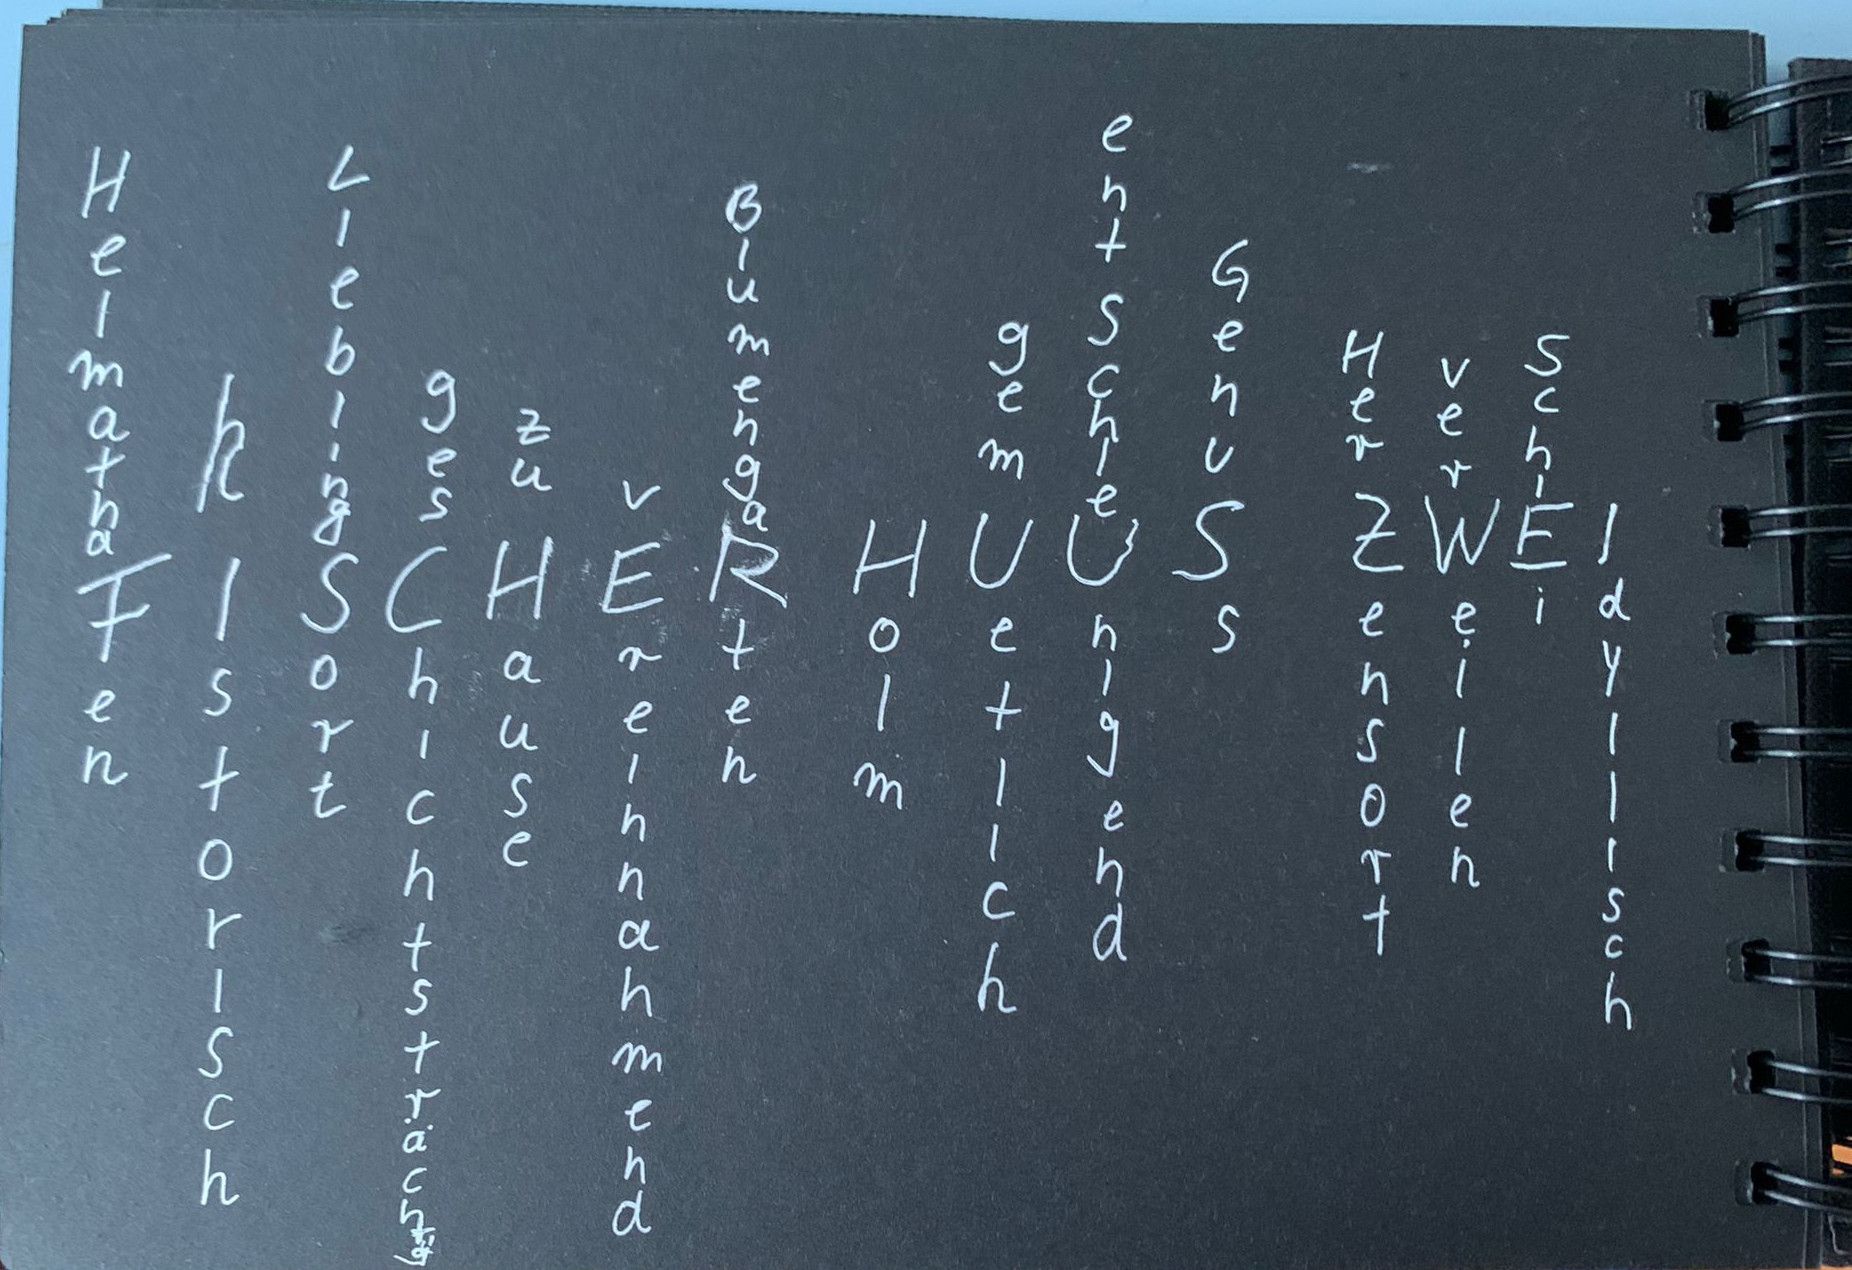 HeimathaFen
hIstorisch
LieblingSort
gesChichtsträchtig
zuHause
vEreinnahmend
BlumengaRten
Holm
gemUetlich
entschleUnigend
GenuSs
HerZensort
verWeilen
SchlEi
Idyllisch